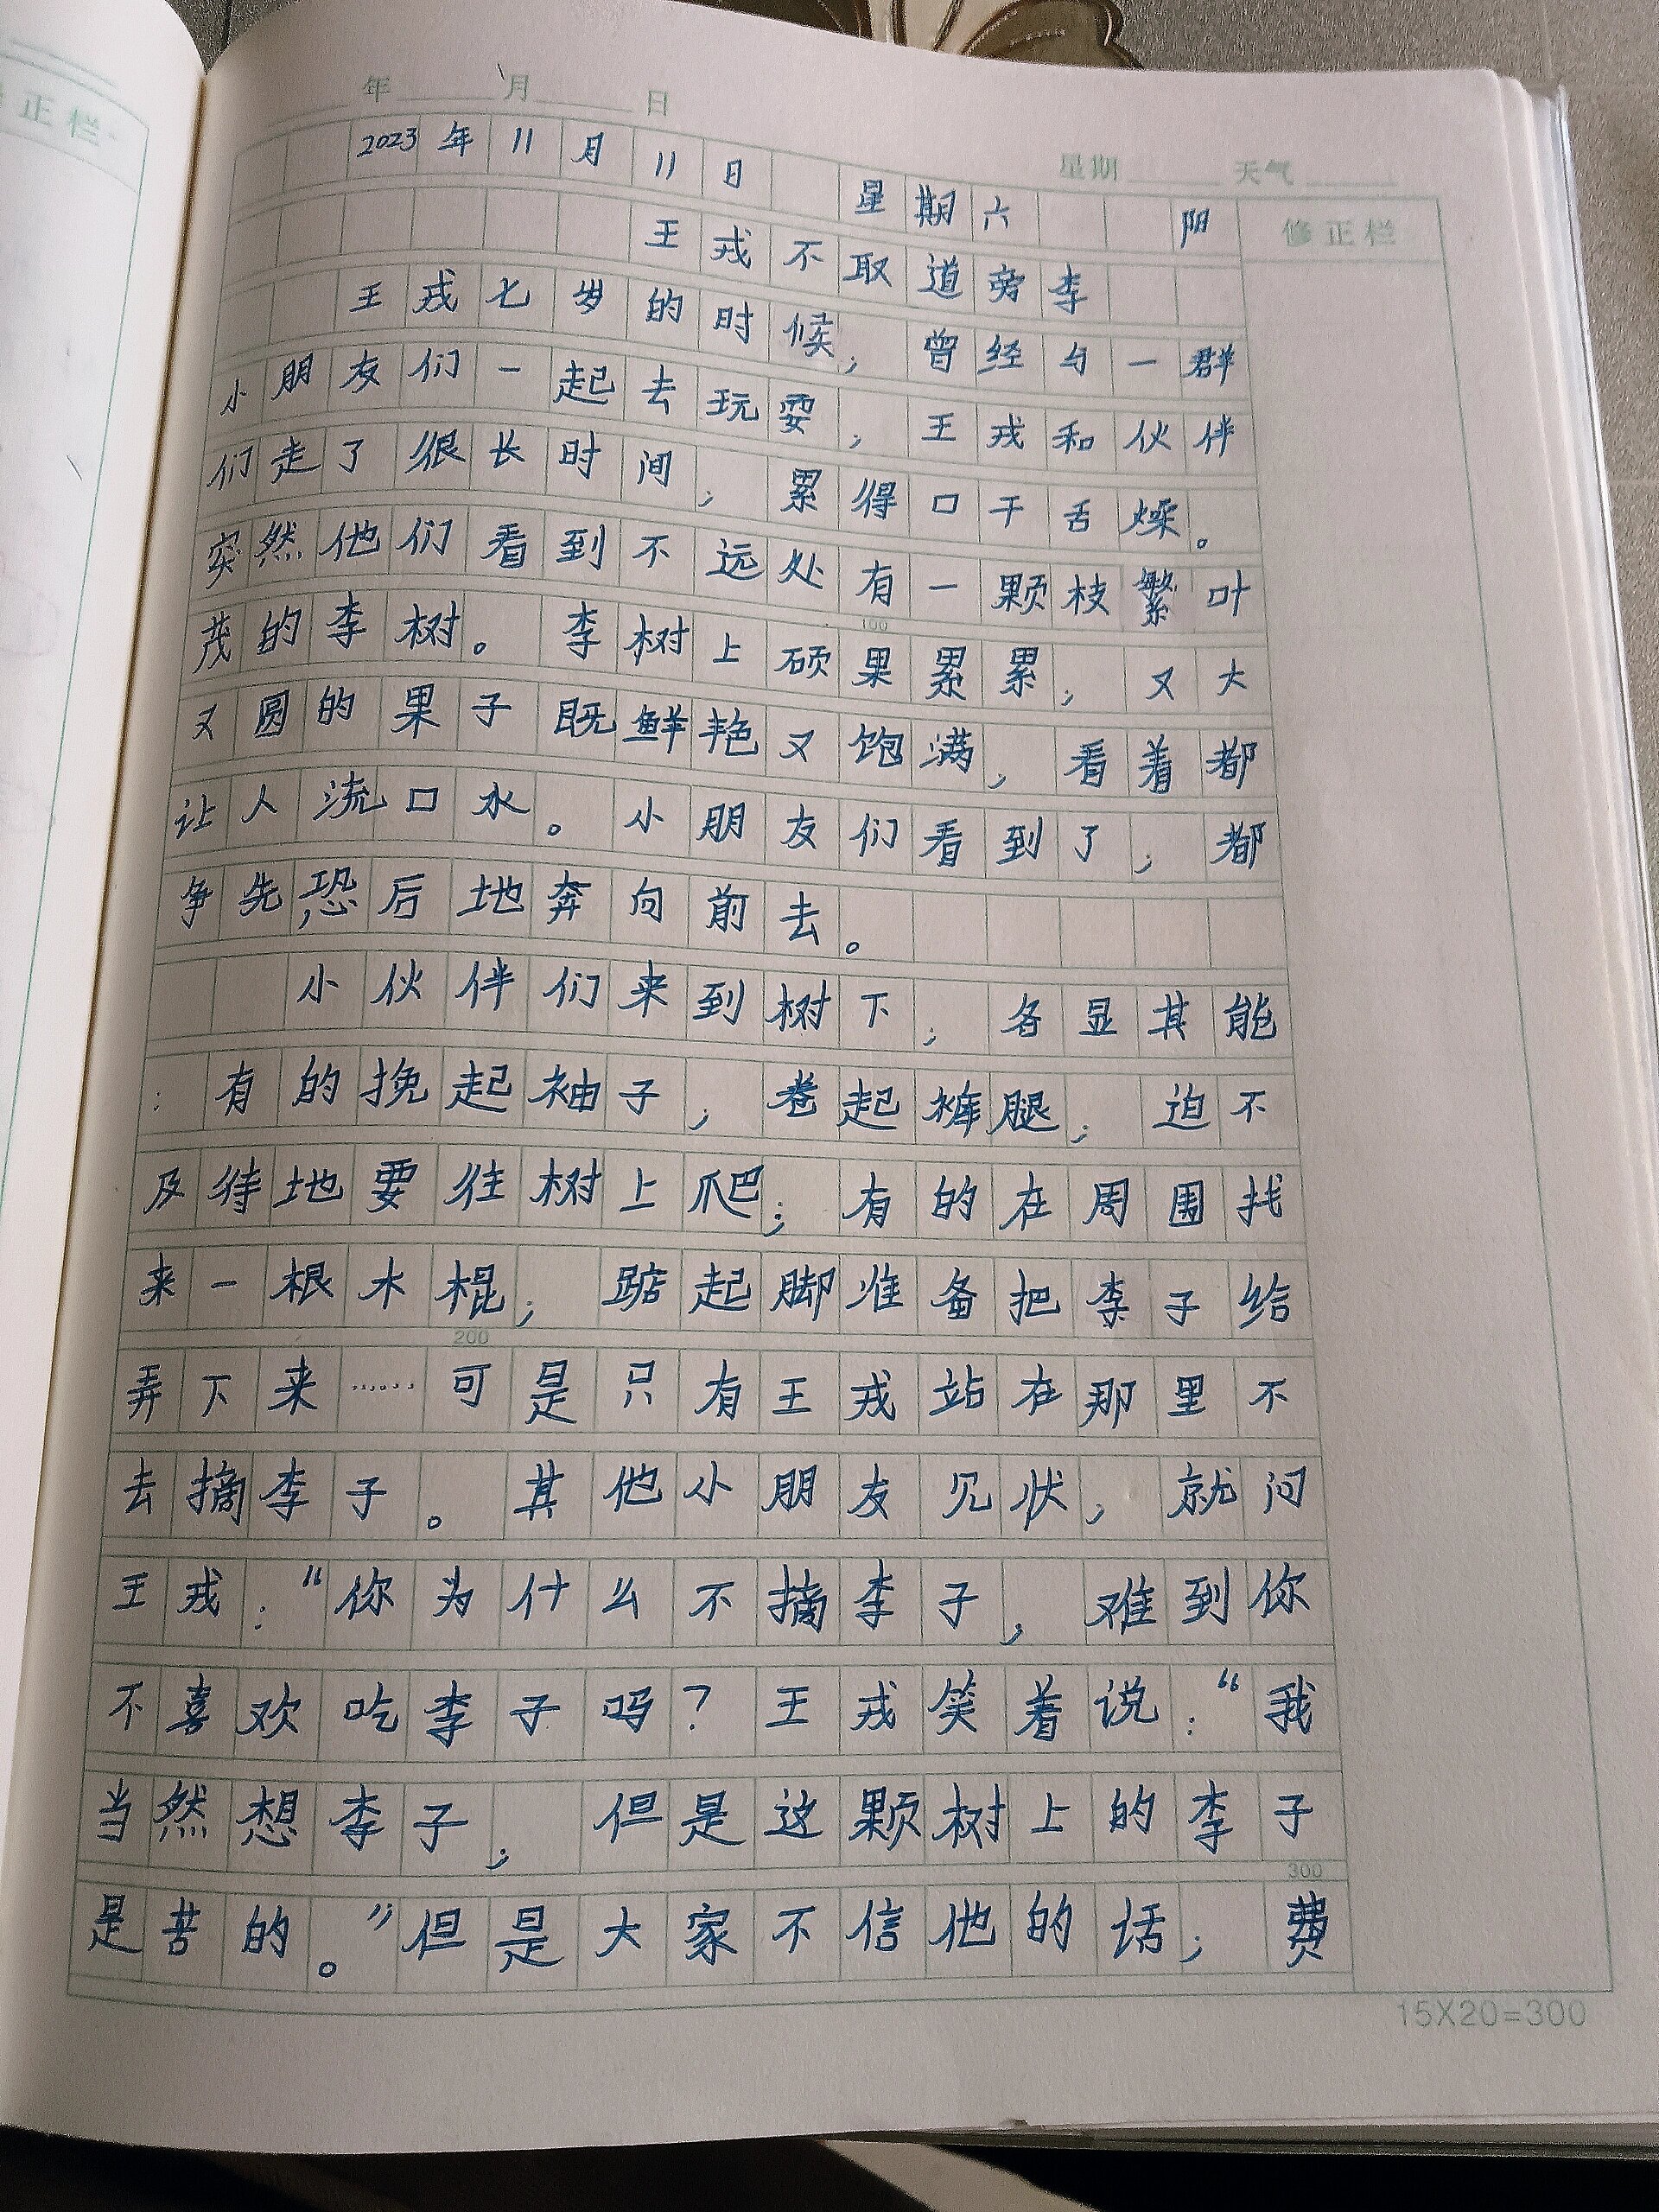 正栏
年 月 日
星期 天气
2023年11月11日 星期六 阳
修正栏
王戎不取道旁李
王戎七岁的时候,曾经与一群
小朋友们一起去玩耍,王戎和伙伴
们走了很长时间,累得口干舌燥。
突然他们看到不远处有一颗枝繁叶
茂的李树。李树上硕果累累,又大
100
又圆的果子既鲜艳又饱满,看着都
让人流口水。小朋友们看到了,都
争先恐后地奔向前去。
小伙伴们来到树下,各显其能
:有的挽起袖子,卷起裤腿,迫不
及待地要往树上爬;有的在周围找
来一根木棍,踮起脚准备把李子给
200
弄下来……可是只有王戎站在那里不
去摘李子。其他小朋友见状,就问
王戎:“你为什么不摘李子,难到你
不喜欢吃李子吗?王戎笑着说:“我
当然想李子,但是这颗树上的李子
300
是苦的。”但是大家不信他的话,费
15X20=300